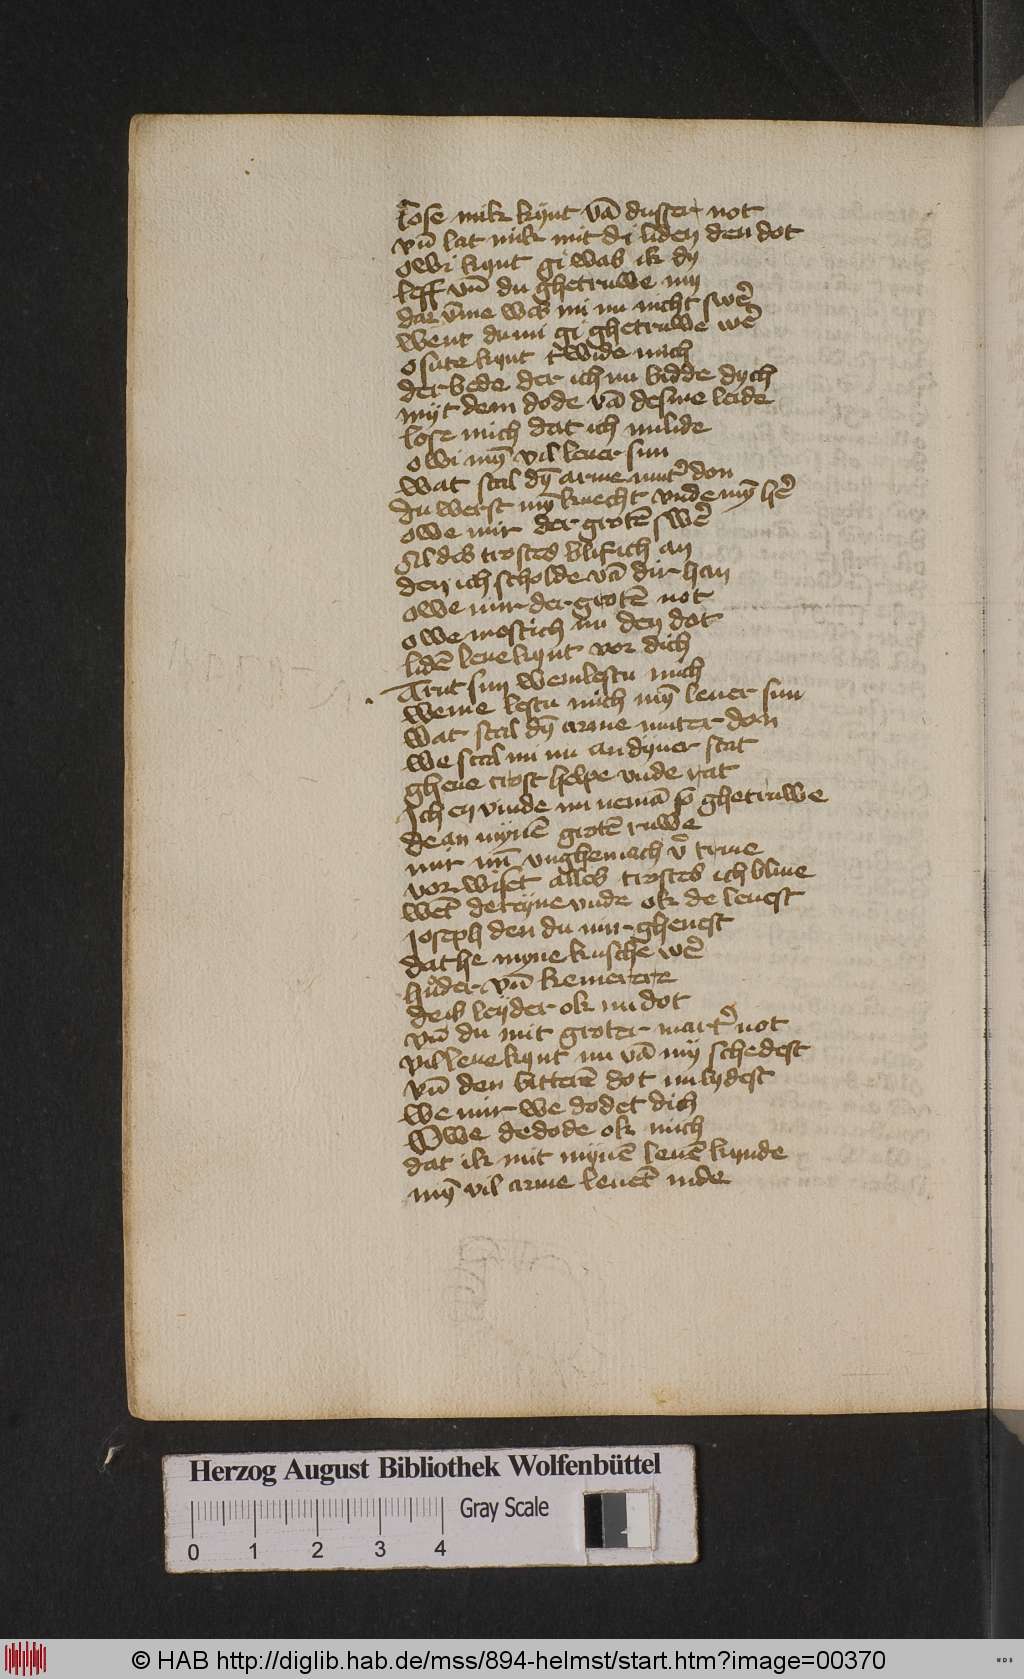 Lose mik kynt vā dusser not
vn̄ lat mik mit di liden den dot
owi kynt gi was ik dy
leff vn̄ du ghetruwe my
dar v̄me was mi nu nicht swe᷑
went du mi gi ghetruwe we᷑
o sute kynt wide mich
der bede der ich nu bidde dych
myt dem dode vā desme leide
lose mich dat ich nu lide
owi my̅ vil leuer sun
wat scal dy̅ arme mut᷑ don
du werst my̅ knecht vnde my̅ he᷑
owe mir der grotē swe᷑
al des trostes blif ich an
den ich scholde vā dir han
owe mir der grotē not
owe mostich nu den dot
lidē leue kynt vor dich
Trut sun weme lestu mich
weme lestu mich my̅ leuer sun
wat scal dy̅ arme muter don
we scal mi nu an dyner stat
gheue trost helpe vnde rat
Ich en vinde nu nemā so ghetruwe
de an mynē grotē ruwe
mir myn̄ vnghemach v̄ truwe
vorwiset alles trostes ich bliue
wēt de reyne vnde ok de leuest
joseph den du mir gheuest
dat he myne kusche we᷑
huder vn̄ kemerere
de is leyder ok nu dot
vn̄ du mit groter mart᷑ not
vil leue kynt nu vā my schedest
vn̄ den bitterē dot nu lydest
we mir we dodet dich
Owe de dode ok mich
dat ik mit mynē leuē kynde
my̅ vil arme leuēt inde
Herzog August Bibliothek Wolfenbüttel
Gray Scale
0 1 2 3 4
© HAB http://diglib.hab.de/mss/894-helmst/start.htm?image=00370